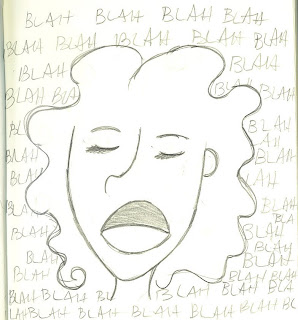 BLAH BLAH BLAH BLAH
BLAH BLAH BLAH BLAH BLAH
BLAH BLAH
BLAH BLA BLAH BLAH
BL BLAH
BLAH BLAH
BLAH BLAH
BLAH AH
BLAH BLAH
BLA
BLAH BLAH
BLAH BLAH
BLAH BLAH
BLAH BLAH BLAH
BLAH BLAH BL BLAH BLAH BLA
LAH BLAH BLAH BLAH BLAH BLAH BL